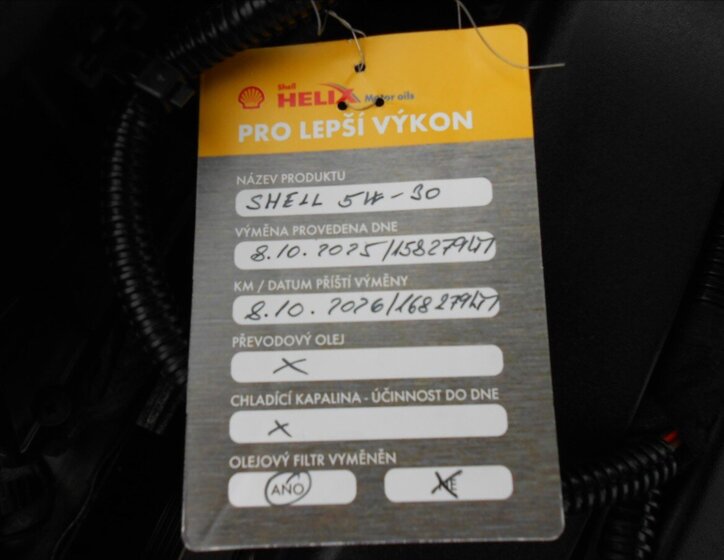 Shell
HELIX Motor oils
PRO LEPŠÍ VÝKON
NÁZEV PRODUKTU
SHELL 5W-30
VÝMĚNA PROVEDENA DNE
8.10.2025/158279KM
KM / DATUM PŘÍŠTÍ VÝMĚNY
8.10.2026/168279KM
PŘEVODOVÝ OLEJ
X
CHLADÍCÍ KAPALINA - ÚČINNOST DO DNE
X
OLEJOVÝ FILTR VYMĚNĚN
ANO NE